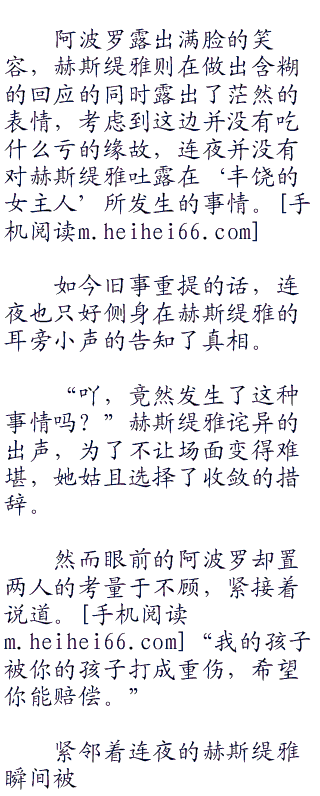 阿波罗露出满脸的笑
容，赫斯缇雅则在做出含糊
的回应的同时露出了茫然的
表情，考虑到这边并没有吃
什么亏的缘故，连夜并没有
对赫斯缇雅吐露在‘丰饶的
女主人’所发生的事情。[手
机阅读m.heihei66.com]
如今旧事重提的话，连
夜也只好侧身在赫斯缇雅的
耳旁小声的告知了真相。
“吖，竟然发生了这种
事情吗？”赫斯缇雅诧异的
出声，为了不让场面变得难
堪，她姑且选择了收敛的措
辞。
然而眼前的阿波罗却置
两人的考量于不顾，紧接着
说道。[手机阅读
m.heihei66.com]“我的孩子
被你的孩子打成重伤，希望
你能赔偿。”
紧邻着连夜的赫斯缇雅
瞬间被